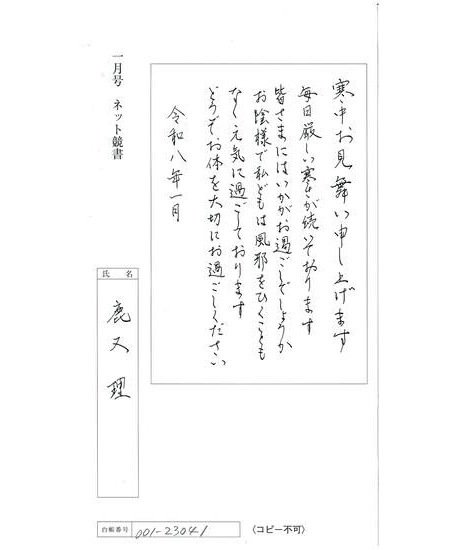 寒中お見舞い申し上げます
毎日厳しい寒さが続いております
皆さまにはいかがお過ごしでしょうか
お陰様で私どもは風邪をひくことも
なく元気に過ごしております
どうぞお体を大切にお過ごしください
令和八年一月
一月号 ネット競書
氏名
鹿又 理
台帳番号 001-23041
〈コピー不可〉